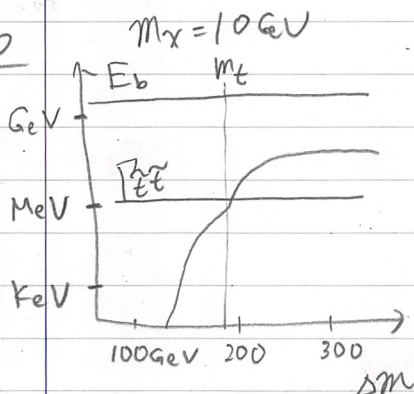 m_x = 10 GeV
E_b
m_t
GeV
Γ_t̃t̃
MeV
KeV
100GeV 200 300
sm